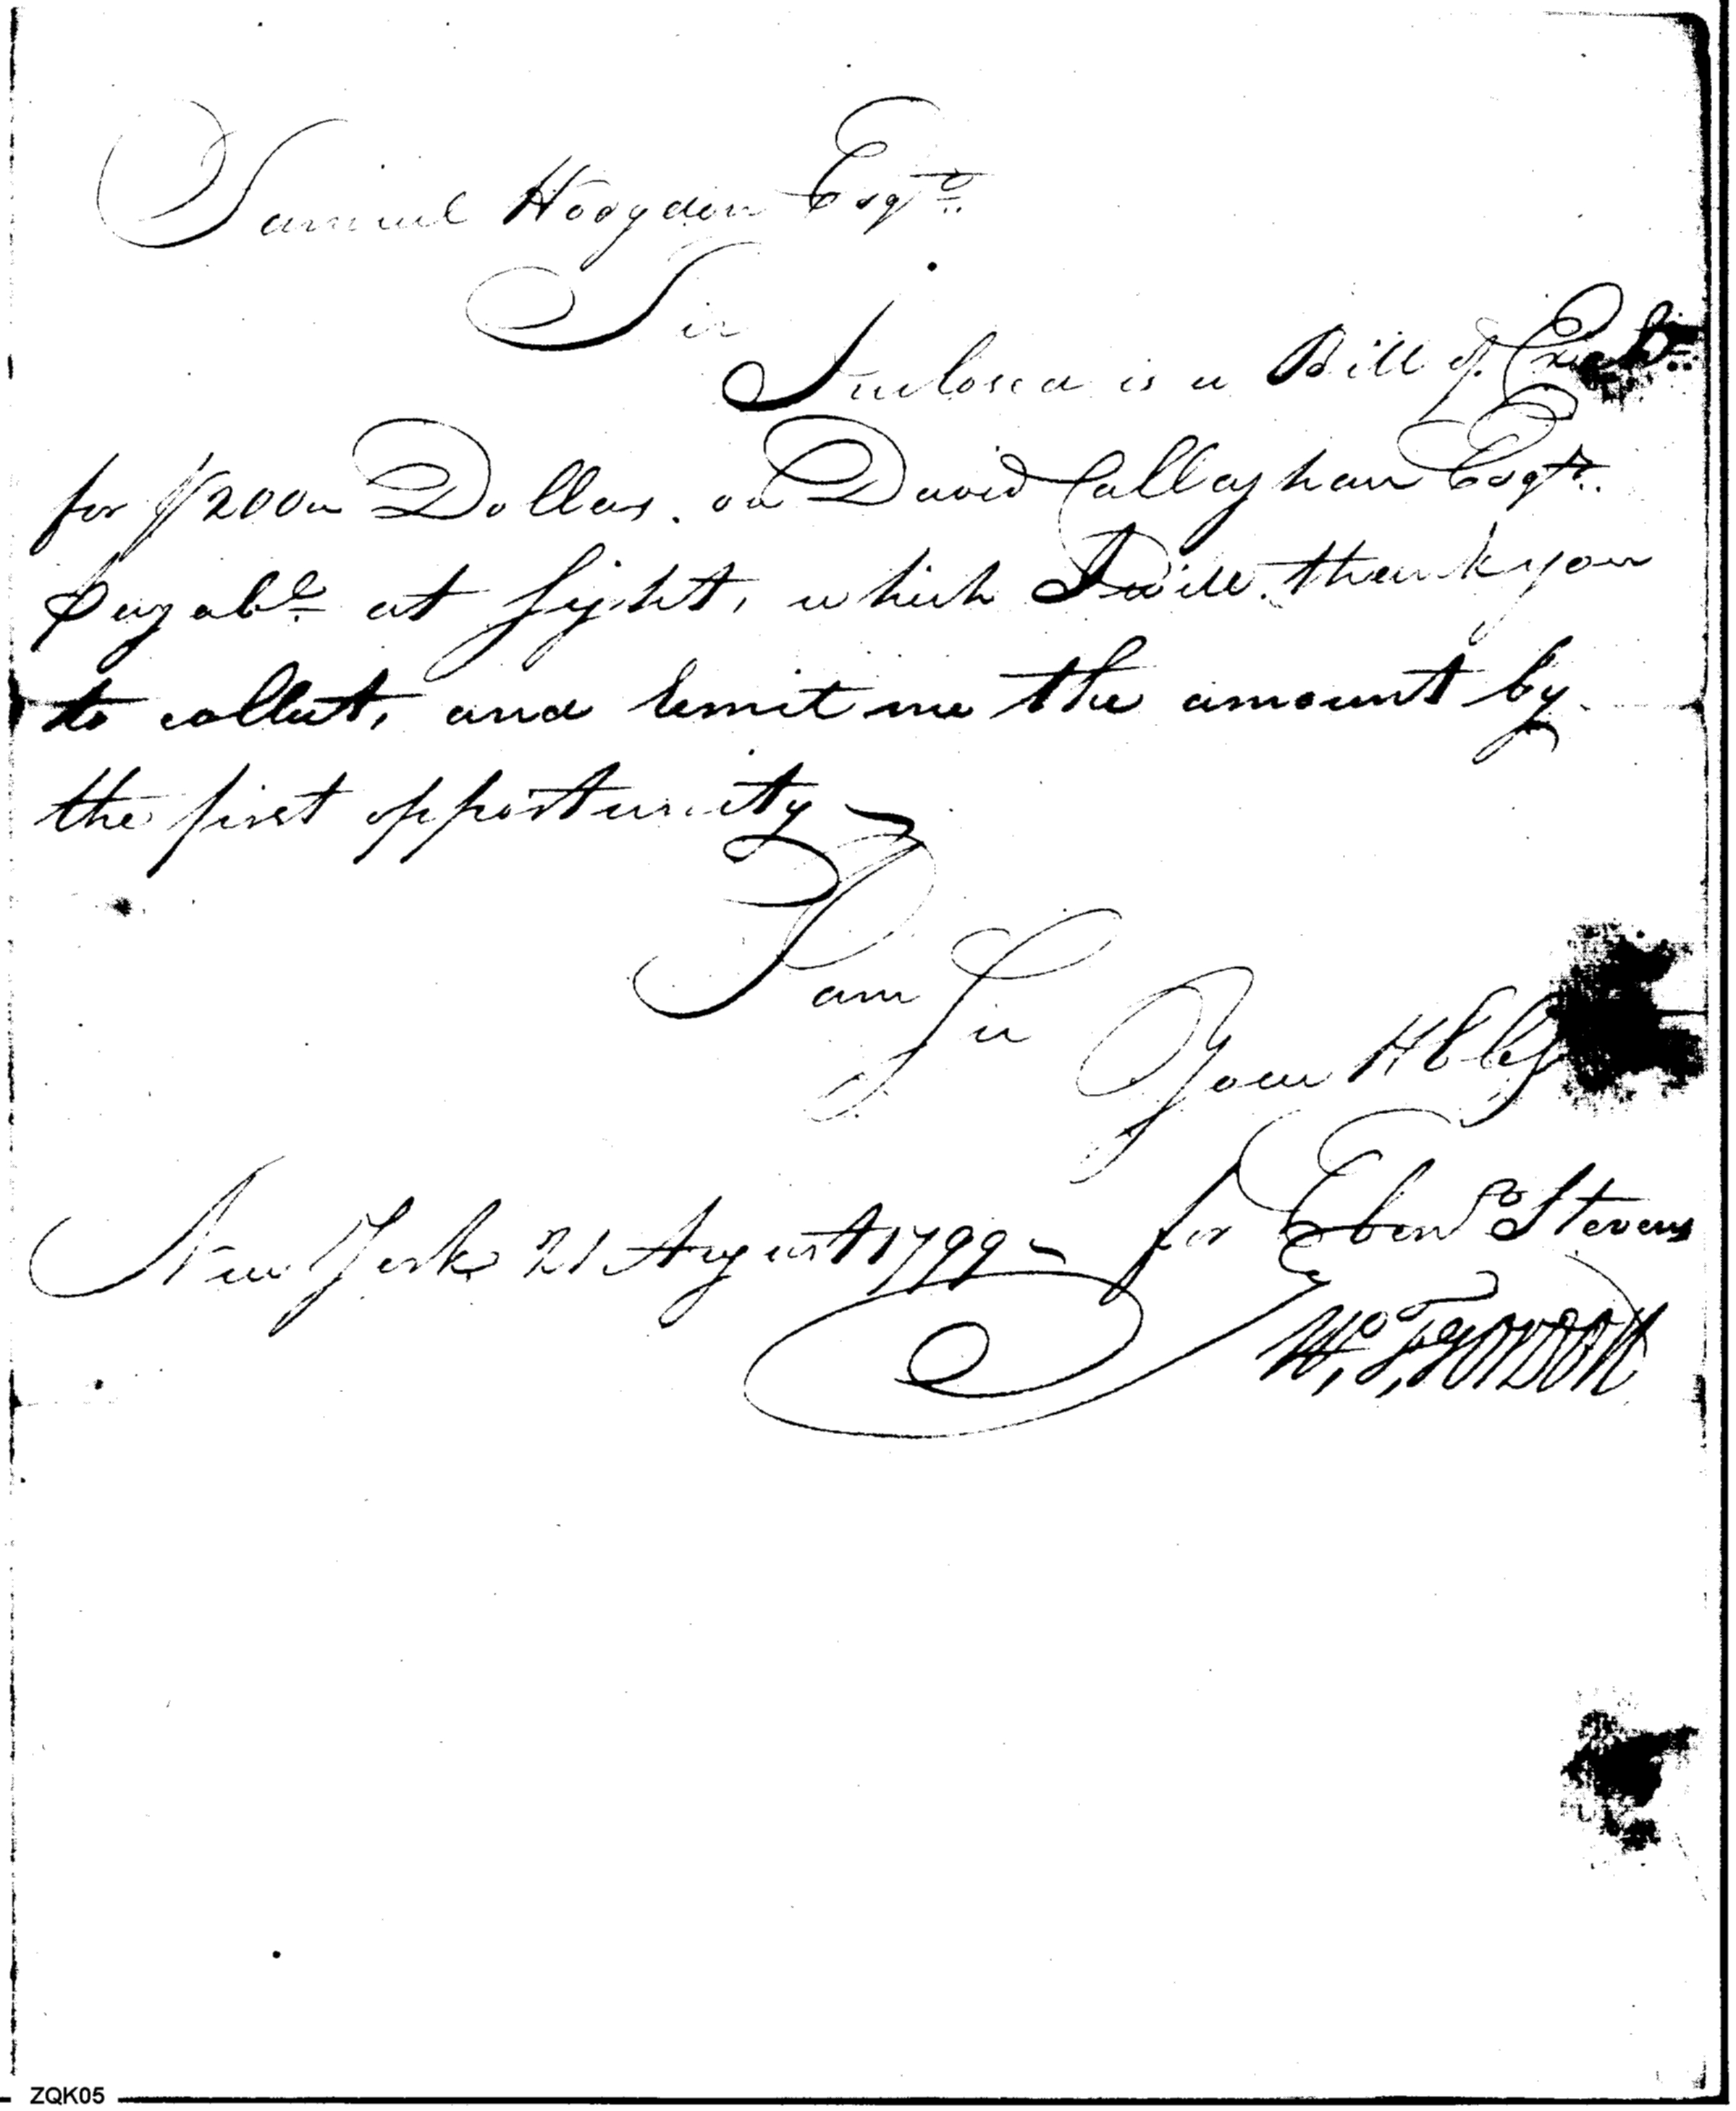 Samuel Hodgdon Esqr.
Sir
Inclosed is a Bill of
for $2000 Dollars. on David Callaghan Esqr.
payable at sight, which I will thank you
to collect, and remit me the amount by
the first opportunity
I am Sir Your
New York 21 August 1799 for Ebenr Stevens
Wm
ZQK05